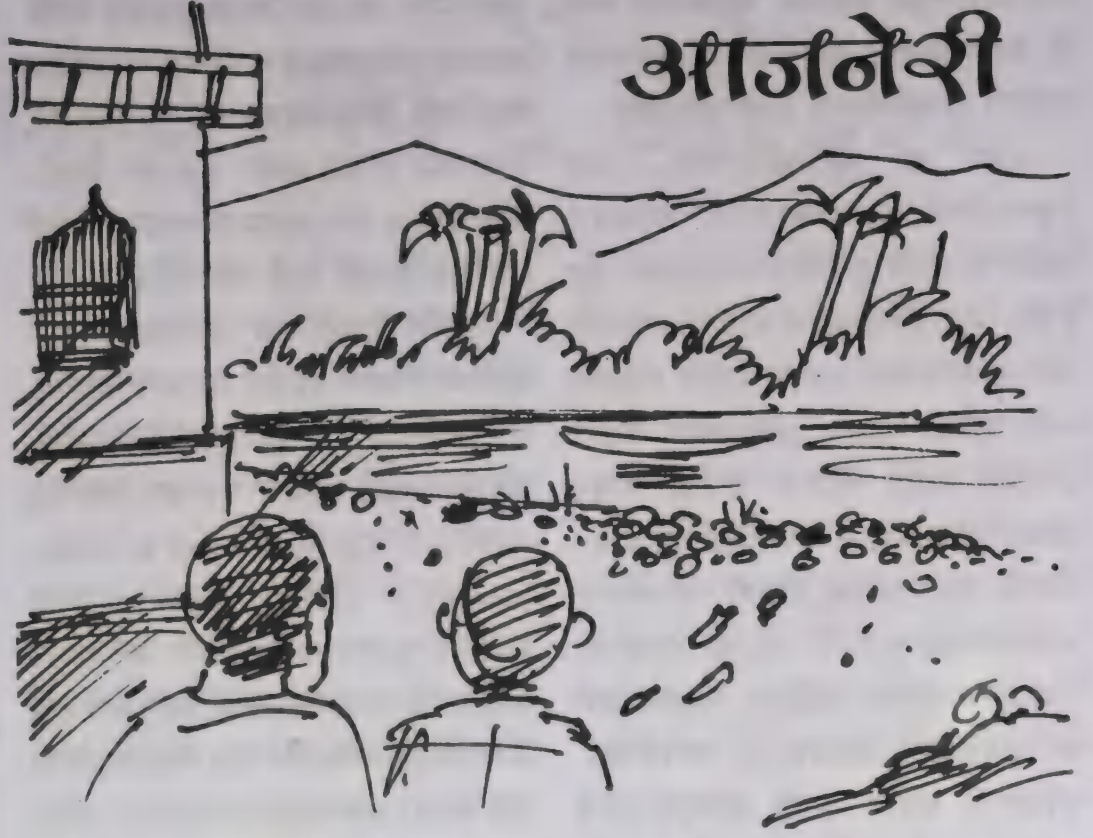 आजनेरी